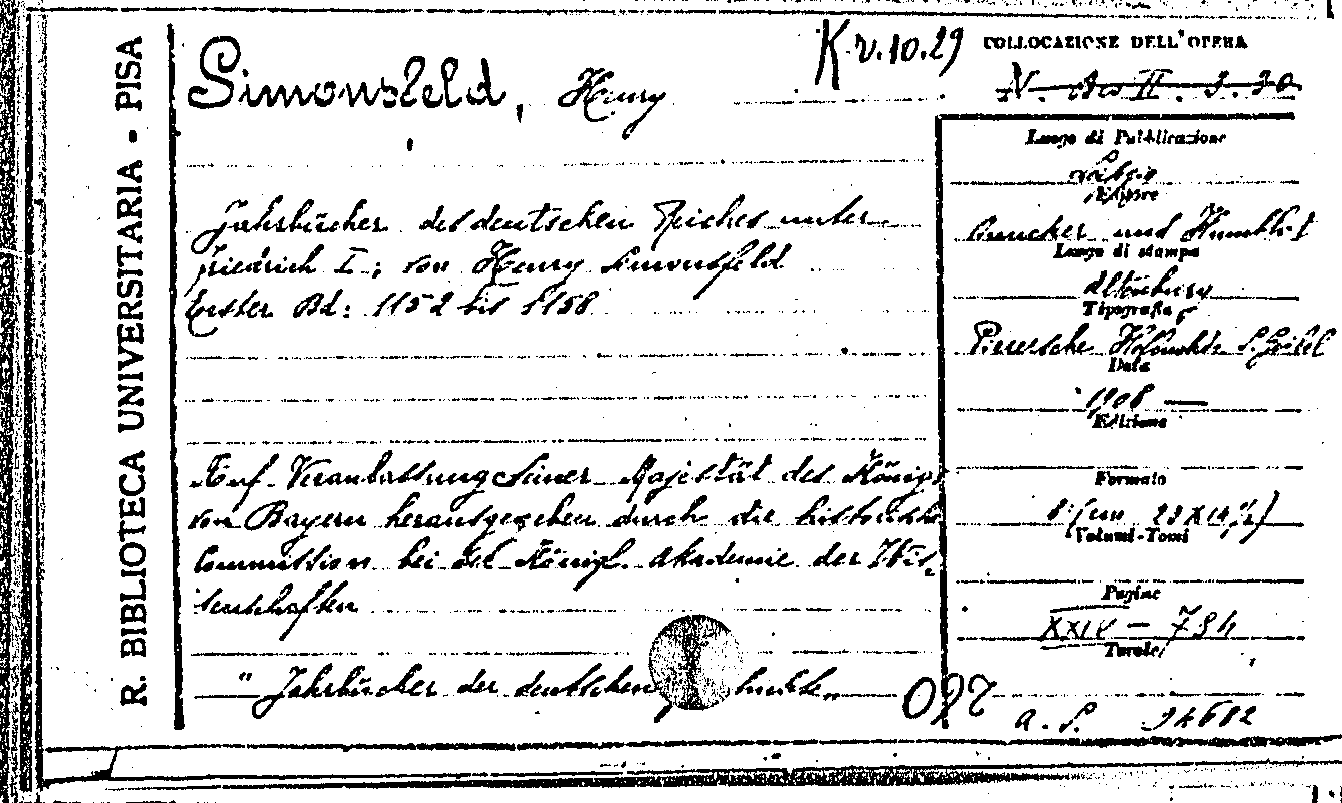 R. BIBLIOTECA UNIVERSITARIA - PISA
K.v.10.29
COLLOCAZIONE DELL'OPERA
Simonsfeld, Henry
Luogo di Pubblicazione
Leipzig
Editore
Jahrbücher des deutschen Reiches unter
Duncker und Humblot
Luogo di stampa
Friedrich I; von Henry Simonsfeld
Altenburg
Erster Bd: 1152 bis 1158
Tipografia
Pierersche Hofbuchdr. S. Geibel
Data
1908 —
Edizione
Auf Veranlassung Seiner Majestät des Königs
Formato
von Bayern herausgegeben durch die historische
8° (cm 23X14½)
Volumi-Tomi
Commission bei der Königl. Akademie der Wis-
senschaften
Pagine
XXIV - 784
Tavole
" Jahrbücher der deutschen
a. S.